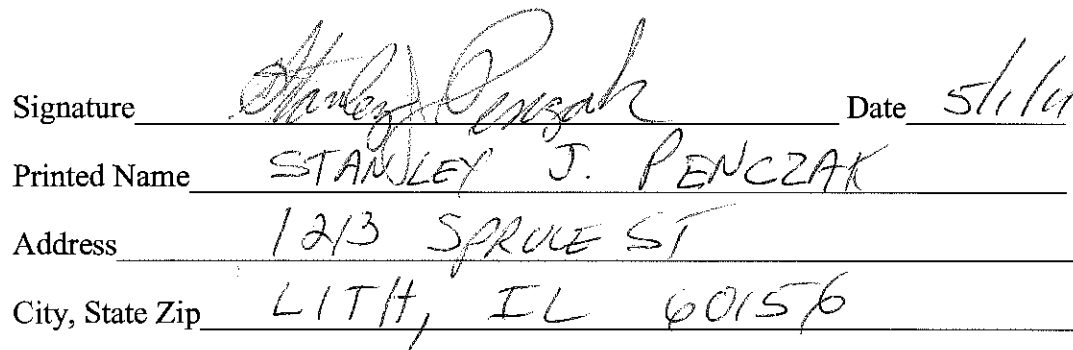 Signature Stanley J Penczak Date 5/1/11
Printed Name STANLEY J. PENCZAK
Address 1213 SPRUCE ST
City, State Zip LITH, IL 60156